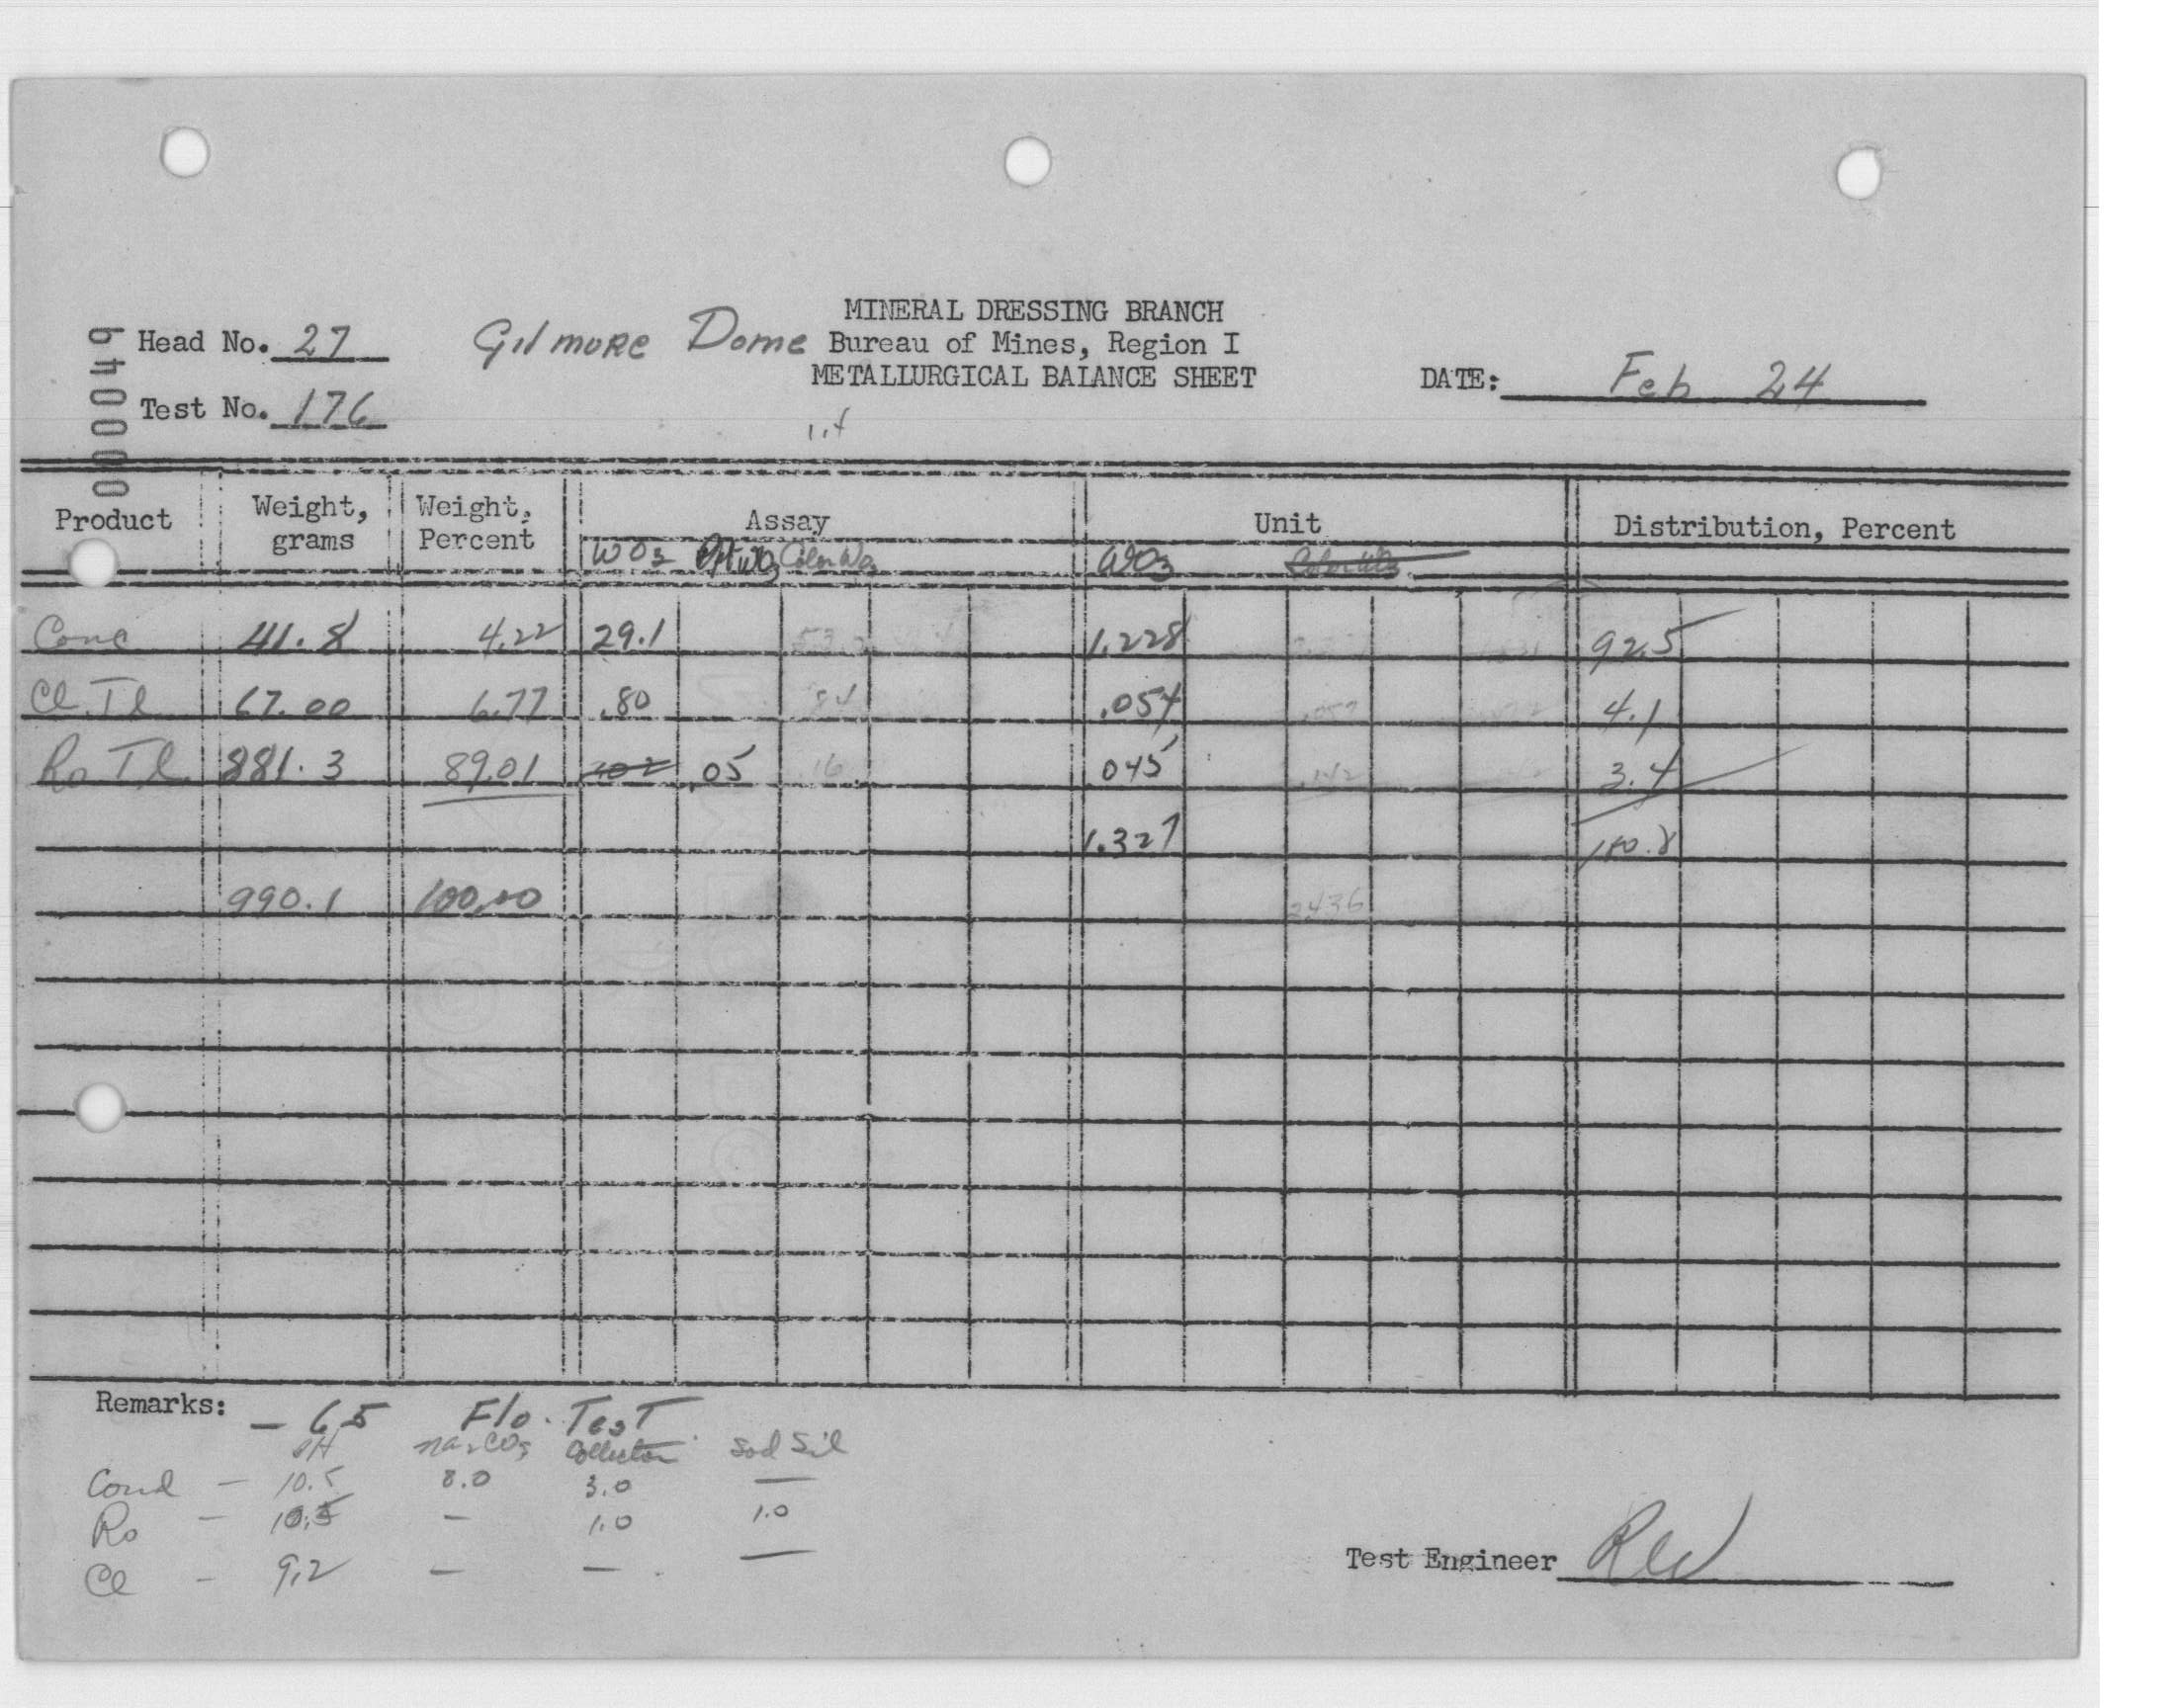 MINERAL DRESSING BRANCH
Head No. 27 Gilmore Dome Bureau of Mines, Region I
METALLURGICAL BALANCE SHEET DATE: Feb 24
Test No. 176
000049
Product Weight, grams Weight, Percent Assay Unit Distribution, Percent
WO3 WO3 Color WO3 WO3
Conc 41.8 4.22 29.1 1.228 92.5
Cl. Tl 67.00 6.77 .80 .054 4.1
Ro Tl 881.3 89.01 .05 .16 .045 .142 3.4
1.327
990.1 100.00 2436
Remarks: - 65 Flo. Test
pH Na2CO3 Collector Sod Sil
Cond - 10.5 8.0 3.0 —
Ro - 10.5 - 1.0 1.0
Cl - 9.2 - - —
Test Engineer